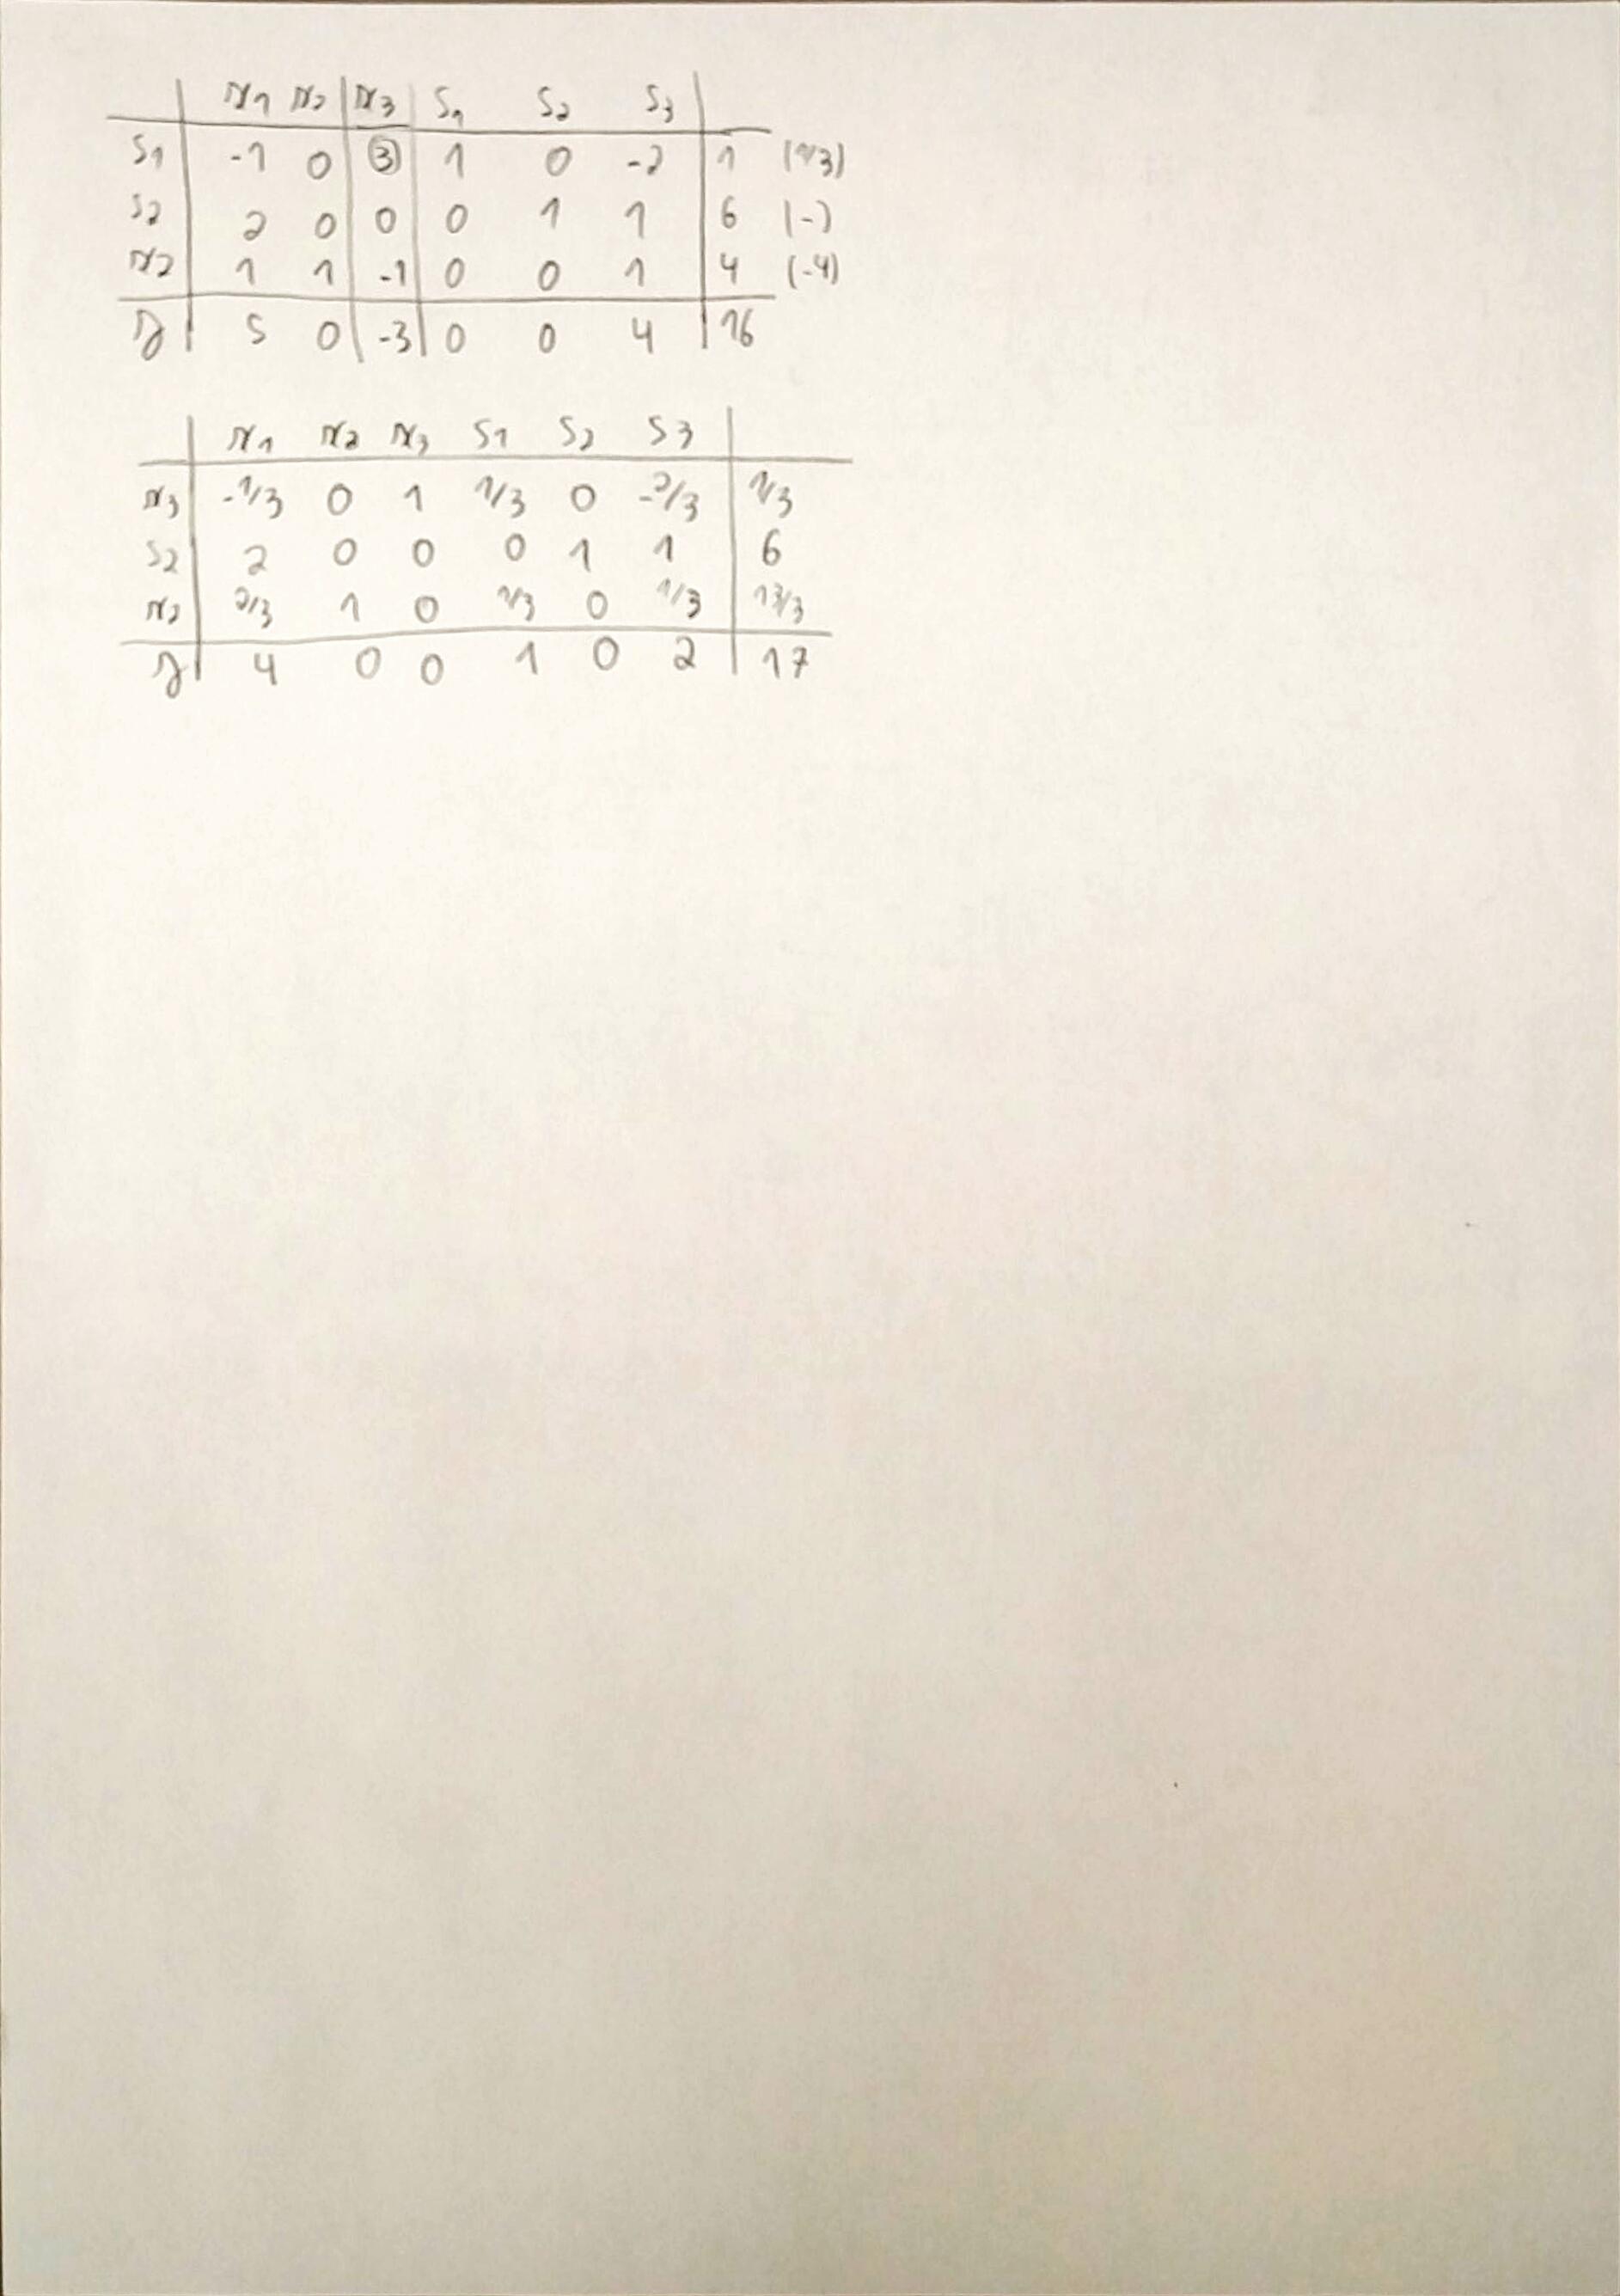 x1 x2 x3 s1 s2 s3
s1 -1 0 3 1 0 -2 1 (1/3)
s2 2 0 0 0 1 1 6 (-)
x2 1 1 -1 0 0 1 4 (-4)
z 5 0 -3 0 0 4 16
x1 x2 x3 s1 s2 s3
x3 -1/3 0 1 1/3 0 -2/3 1/3
s2 2 0 0 0 1 1 6
x2 2/3 1 0 1/3 0 1/3 13/3
z 4 0 0 1 0 2 17